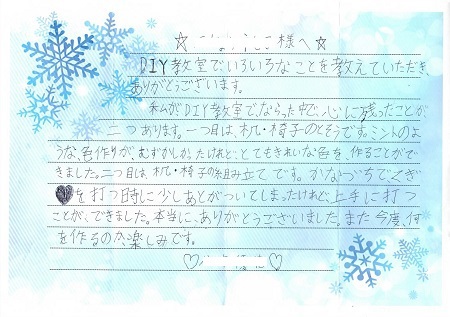 様へ
DIY教室でいろいろなことを教えていただき、
ありがとうございます。
私が、DIY教室でならった中で、心に残ったことが、
二つあります。一つ目は、机・椅子のとそうです。ミントのよ
うな、色作りが、むずかしかったけれど、とてもきれいな色を、作ることがで
きました。二つ目は、机・椅子の組み立てです。かなづちでくぎ
を打つ時に少しあとがついてしまったけれど、上手に打つ
ことが、できました。本当に、ありがとうございました。また今度、何
を作るのか、楽しみです。